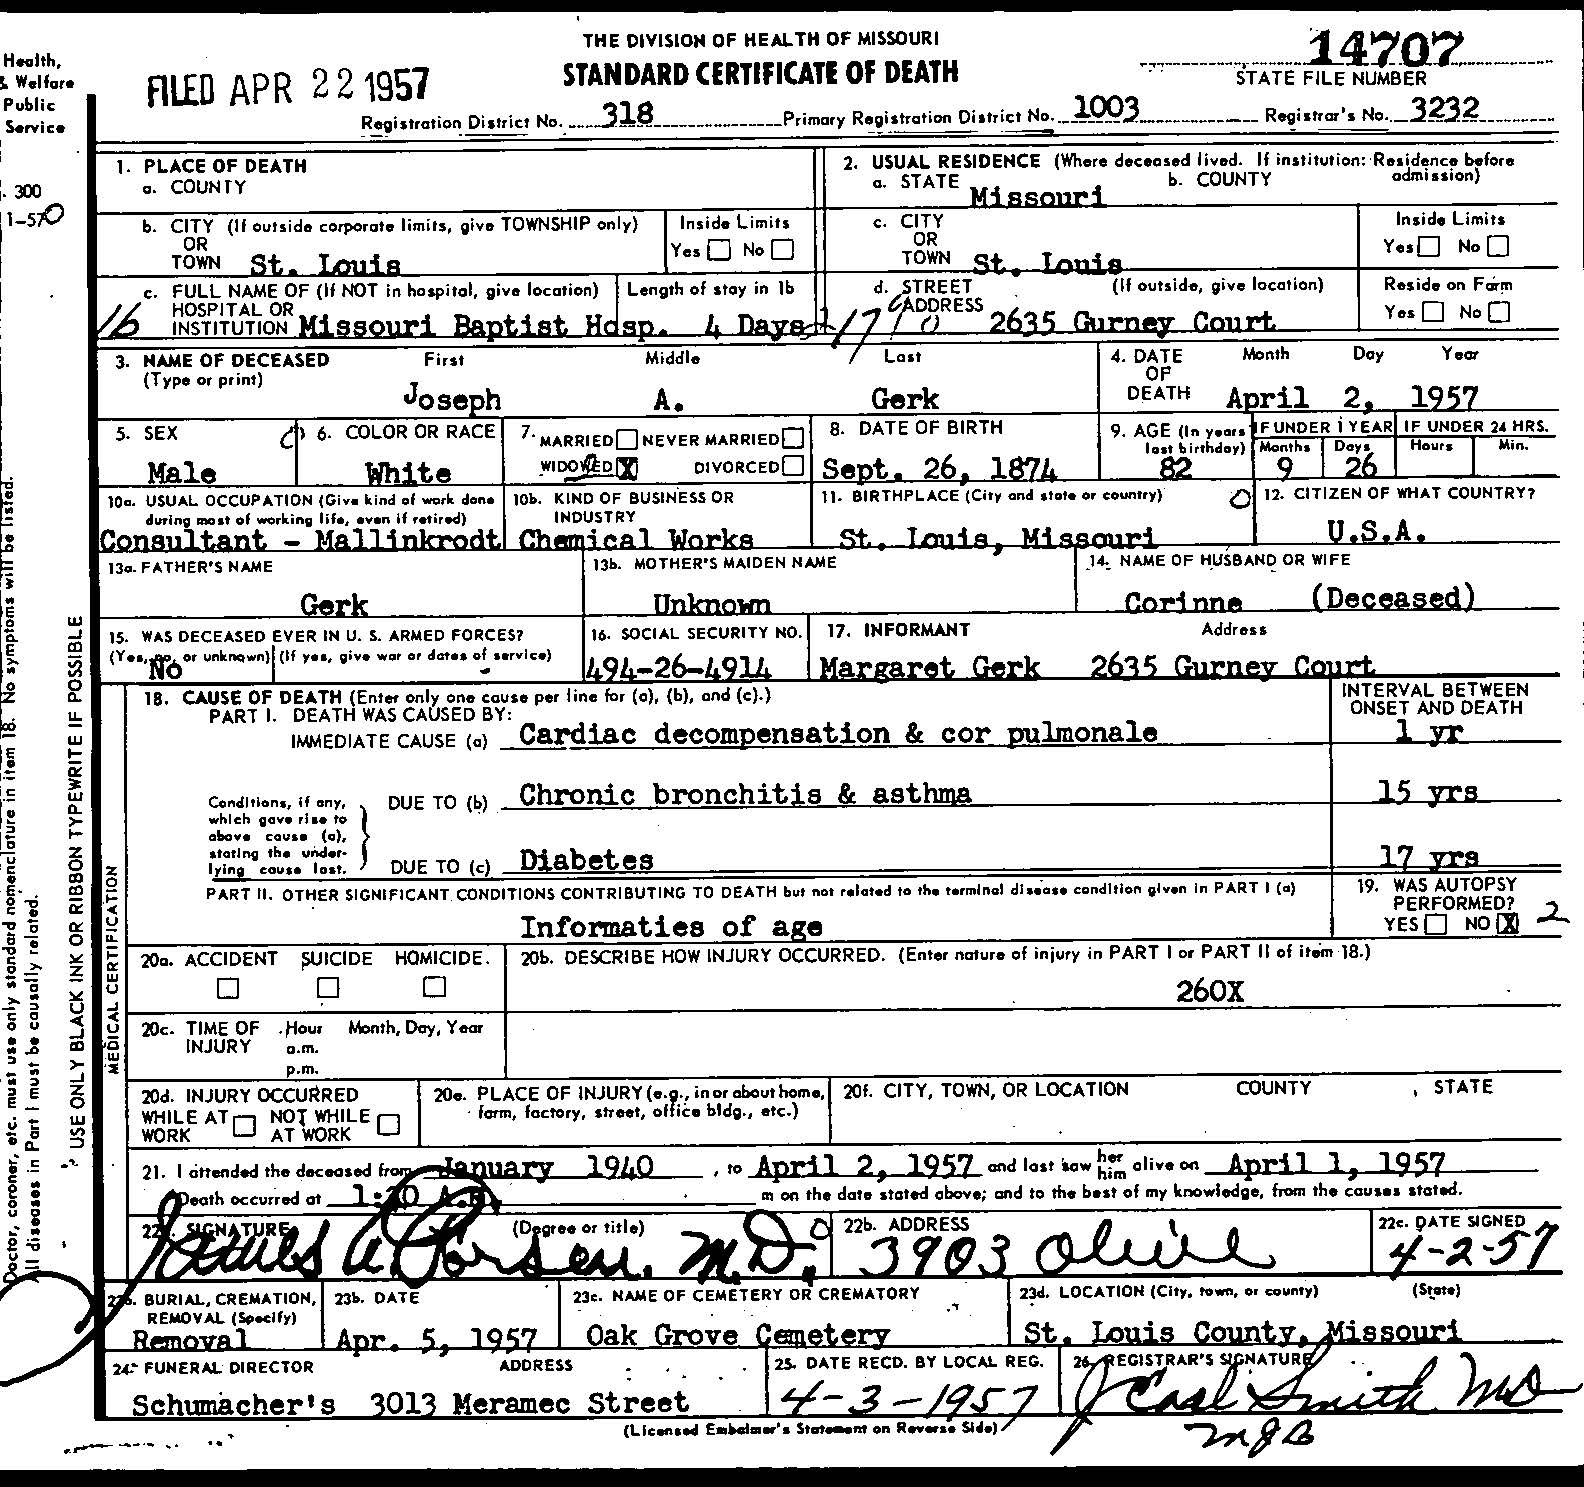 THE DIVISION OF HEALTH OF MISSOURI
STANDARD CERTIFICATE OF DEATH
FILED APR 22 1957
14707
STATE FILE NUMBER
Registration District No. 318 Primary Registration District No. 1003 Registrar's No. 3232
Health,
& Welfare
Public
Service
. 300
1-57 0
1. PLACE OF DEATH
a. COUNTY
2. USUAL RESIDENCE (Where deceased lived. If institution: Residence before admission)
a. STATE Missouri b. COUNTY
b. CITY (If outside corporate limits, give TOWNSHIP only)
OR
TOWN St. Louis
Inside Limits
Yes No
c. CITY
OR
TOWN St. Louis
Inside Limits
Yes No
c. FULL NAME OF (If NOT in hospital, give location)
HOSPITAL OR
INSTITUTION Missouri Baptist Hosp.
Length of stay in 1b
4 Days
16
d. STREET (If outside, give location)
ADDRESS 2635 Gurney Court
Reside on Farm
Yes No
3. NAME OF DECEASED First Middle Last
(Type or print)
Joseph A. Gerk
4. DATE Month Day Year
OF
DEATH April 2, 1957
5. SEX
Male
6. COLOR OR RACE
White
7. MARRIED NEVER MARRIED
WIDOWED X DIVORCED
8. DATE OF BIRTH
Sept. 26, 1874
9. AGE (In years last birthday)
82
IF UNDER 1 YEAR IF UNDER 24 HRS.
Months Days Hours Min.
9 26
10a. USUAL OCCUPATION (Give kind of work done
during most of working life, even if retired)
Consultant - Mallinkrodt
10b. KIND OF BUSINESS OR
INDUSTRY
Chemical Works
11. BIRTHPLACE (City and state or country)
St. Louis, Missouri
12. CITIZEN OF WHAT COUNTRY?
U.S.A.
13a. FATHER'S NAME
Gerk
13b. MOTHER'S MAIDEN NAME
Unknown
14. NAME OF HUSBAND OR WIFE
Corinne (Deceased)
15. WAS DECEASED EVER IN U. S. ARMED FORCES?
(Yes, no, or unknown) (If yes, give war or dates of service)
No -
16. SOCIAL SECURITY NO.
494-26-4914
17. INFORMANT Address
Margaret Gerk 2635 Gurney Court
18. CAUSE OF DEATH (Enter only one cause per line for (a), (b), and (c).)
PART I. DEATH WAS CAUSED BY:
IMMEDIATE CAUSE (a) Cardiac decompensation & cor pulmonale
INTERVAL BETWEEN
ONSET AND DEATH
1 yr
Conditions, if any,
which gave rise to
above cause (a),
stating the under-
lying cause last.
DUE TO (b) Chronic bronchitis & asthma 15 yrs
DUE TO (c) Diabetes 17 yrs
PART II. OTHER SIGNIFICANT CONDITIONS CONTRIBUTING TO DEATH but not related to the terminal disease condition given in PART I (a)
Informaties of age
19. WAS AUTOPSY
PERFORMED?
YES NO X 2
20a. ACCIDENT SUICIDE HOMICIDE.
20b. DESCRIBE HOW INJURY OCCURRED. (Enter nature of injury in PART I or PART II of item 18.)
260X
20c. TIME OF Hour Month, Day, Year
INJURY a.m.
p.m.
20d. INJURY OCCURRED
WHILE AT NOT WHILE
WORK AT WORK
20e. PLACE OF INJURY (e.g., in or about home,
farm, factory, street, office bldg., etc.)
20f. CITY, TOWN, OR LOCATION COUNTY STATE
21. I attended the deceased from January 1940, to April 2, 1957 and last saw her him alive on April 1, 1957
Death occurred at A.M. m on the date stated above; and to the best of my knowledge, from the causes stated.
22a. SIGNATURE (Degree or title)
James M.D.
22b. ADDRESS
3903 Olive
22c. DATE SIGNED
4-2-57
23a. BURIAL, CREMATION,
REMOVAL (Specify)
Removal
23b. DATE
Apr. 5, 1957
23c. NAME OF CEMETERY OR CREMATORY
Oak Grove Cemetery
23d. LOCATION (City, town, or county) (State)
St. Louis County, Missouri
24. FUNERAL DIRECTOR ADDRESS
Schumacher's 3013 Meramec Street
25. DATE RECD. BY LOCAL REG.
4-3-1957
26. REGISTRAR'S SIGNATURE
J Carl Smith MD
MJB
(Licensed Embalmer's Statement on Reverse Side)
MEDICAL CERTIFICATION
USE ONLY BLACK INK OR RIBBON TYPEWRITE IF POSSIBLE
Doctor, coroner, etc. must use only standard nomenclature in item 18. No symptoms will be listed.
All diseases in Part I must be causally related.